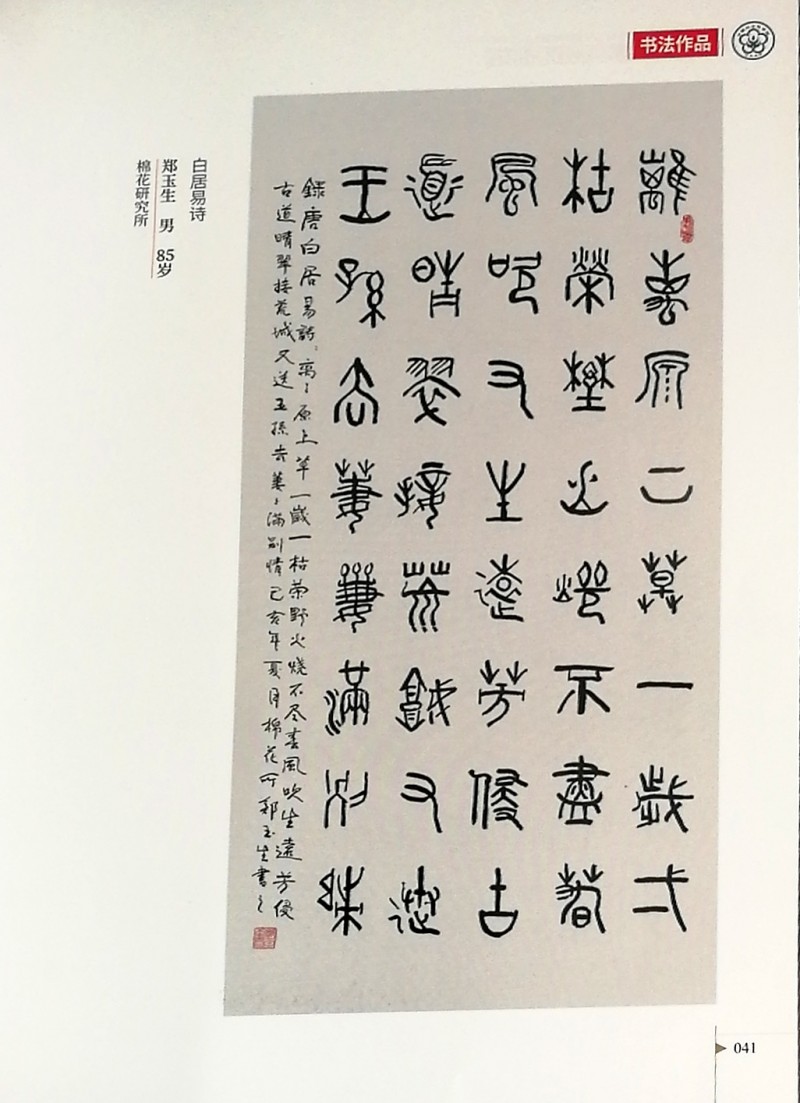 书法作品
離离原上草一歲弌
枯榮壄火燒不盡春
風吹又生遠芳侵古
道晴翠接荒城又送
王孫去萋萋滿別情
錄唐白居易詩离々原上草一歲一枯荣野火烧不尽春風吹生遠芳侵
古道晴翠接荒城又送王孫去萋々滿别情己亥年夏月棉花所郑玉生書之
白居易诗
郑玉生 男 85岁
棉花研究所
041